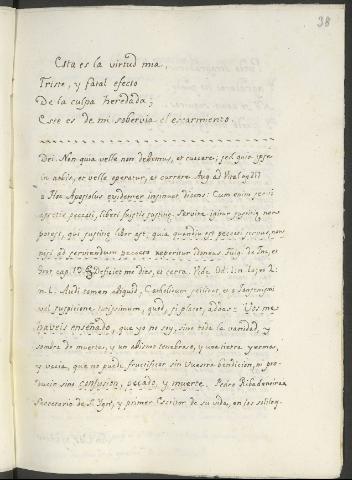 38
Esta es la virtud mia,
Triste, y fatal efecto
De la culpa heredada;
Esse es de mi sobervia el escarmiento.
Dei. Non quia velle non debemus, et currere; sed quia ipse
in nobis, et velle operatur, et currere. Aug. ad Vital.
Apostolus evidenter insinuat dicens: Cum enim servi
essetis peccati, liberi fuistis justitiæ. Servire igitur justitiæ non
potest, qui justitiæ liber est; quia quandiu est peccati servus, non
nisi ad serviendum peccato reperitur idoneus. Fulg. de Inc. et
Grat. cap. 19. deficiet me dies, et certa. Vide
n. l. Audi tamen aliquid, Catholicum scilicet, et a
vel suspicione tutissimum, quod, si placet, adoce: Vos me
haveis enseñado, que yo no soy, sino toda la vanidad, y
sombra de muerte, y un abismo tenebroso, y una tierra yerma,
y vacia, que no puede fructificar sin vuestra bendicion, ni pro-
ducir sino confusion, pecado, y muerte. Pedro Ribadeneira
Secretario de S. Ign., y primer Escritor de su vida, en los soliloq.